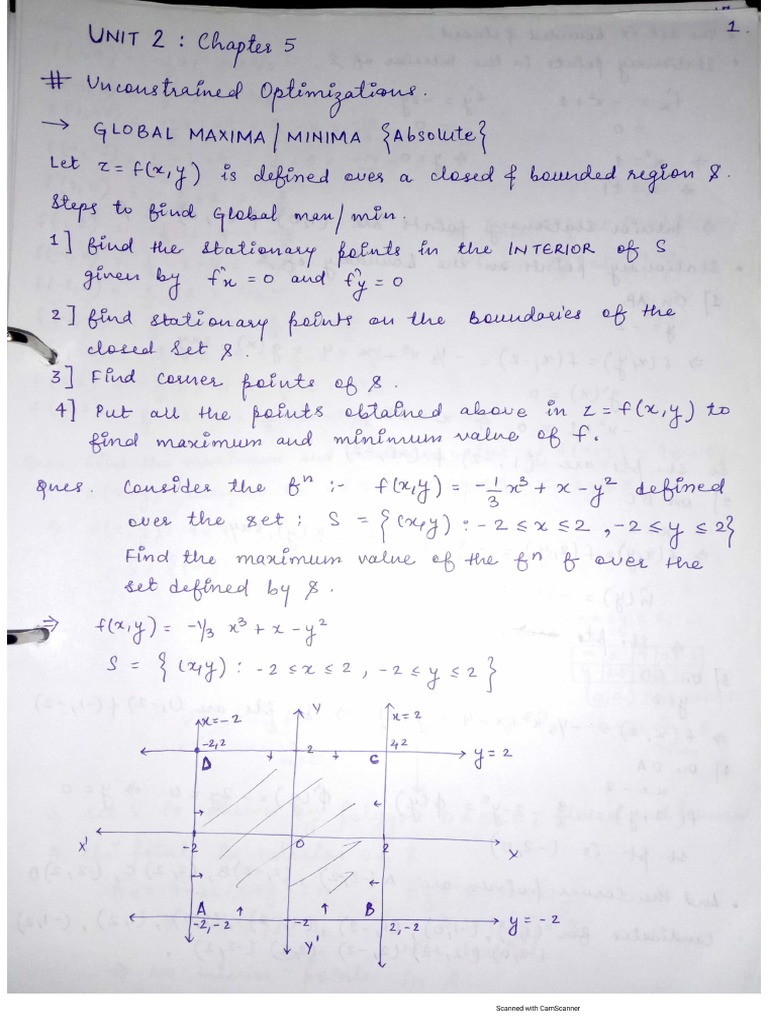 1.
UNIT 2 : Chapter 5
# Unconstrained Optimizations.
→ GLOBAL MAXIMA / MINIMA {Absolute}
Let z = f(x,y) is defined over a closed & bounded region S.
Steps to find Global max/min.
1] find the stationary points in the INTERIOR of S
given by f'x = 0 and f'y = 0
2] find stationary points on the boundaries of the
closed set S.
3] Find corner points of S.
4] Put all the points obtained above in z = f(x,y) to
find maximum and minimum value of f.
Ques. Consider the fⁿ :- f(x,y) = -1/3 x³ + x - y² defined
over the set : S = {(x,y) : -2 ≤ x ≤ 2 , -2 ≤ y ≤ 2}
Find the maximum value of the fⁿ f over the
set defined by S.
⇒ f(x,y) = -1/3 x³ + x - y²
S = { (x,y) : -2 ≤ x ≤ 2 , -2 ≤ y ≤ 2 }
x = -2 Y x = 2
-2,2 2 4 2 y = 2
D C
X' -2 O 2 X
A B
-2,-2 -2 2,-2 y = -2
Y'
Scanned with CamScanner